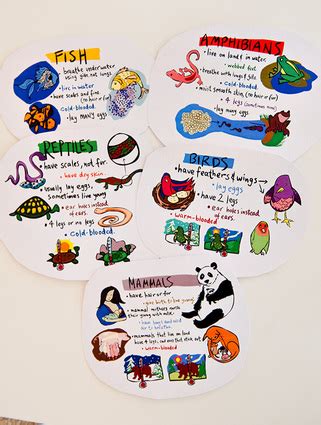 FISH
• breathe underwater
using gills, not lungs
• live in water
• have scales and fins
(no hair or fur)
• cold-blooded
• lay many eggs
AMPHIBIANS
• live on land & in water
• webbed feet
• breathe with lungs & gills
• cold-blooded
• moist, smooth skin, no hair or fur
• 4 legs (sometimes none)
• lay many eggs
REPTILES
• have scales, not fur
• have dry skin
• usually lay eggs,
sometimes live young
• ear holes instead
of ears
• 4 legs or no legs
• Cold-blooded
BIRDS
• have feathers & wings
• lay eggs
• have 2 legs
• ear holes instead
of ears
• warm-blooded
MAMMALS
• have hair or fur
• give birth to live young
• mammal mothers nurse
their young with milk
• have lungs and need
air to breathe
• mammals that live on land
have 4 legs, and ears that stick out
• warm-blooded